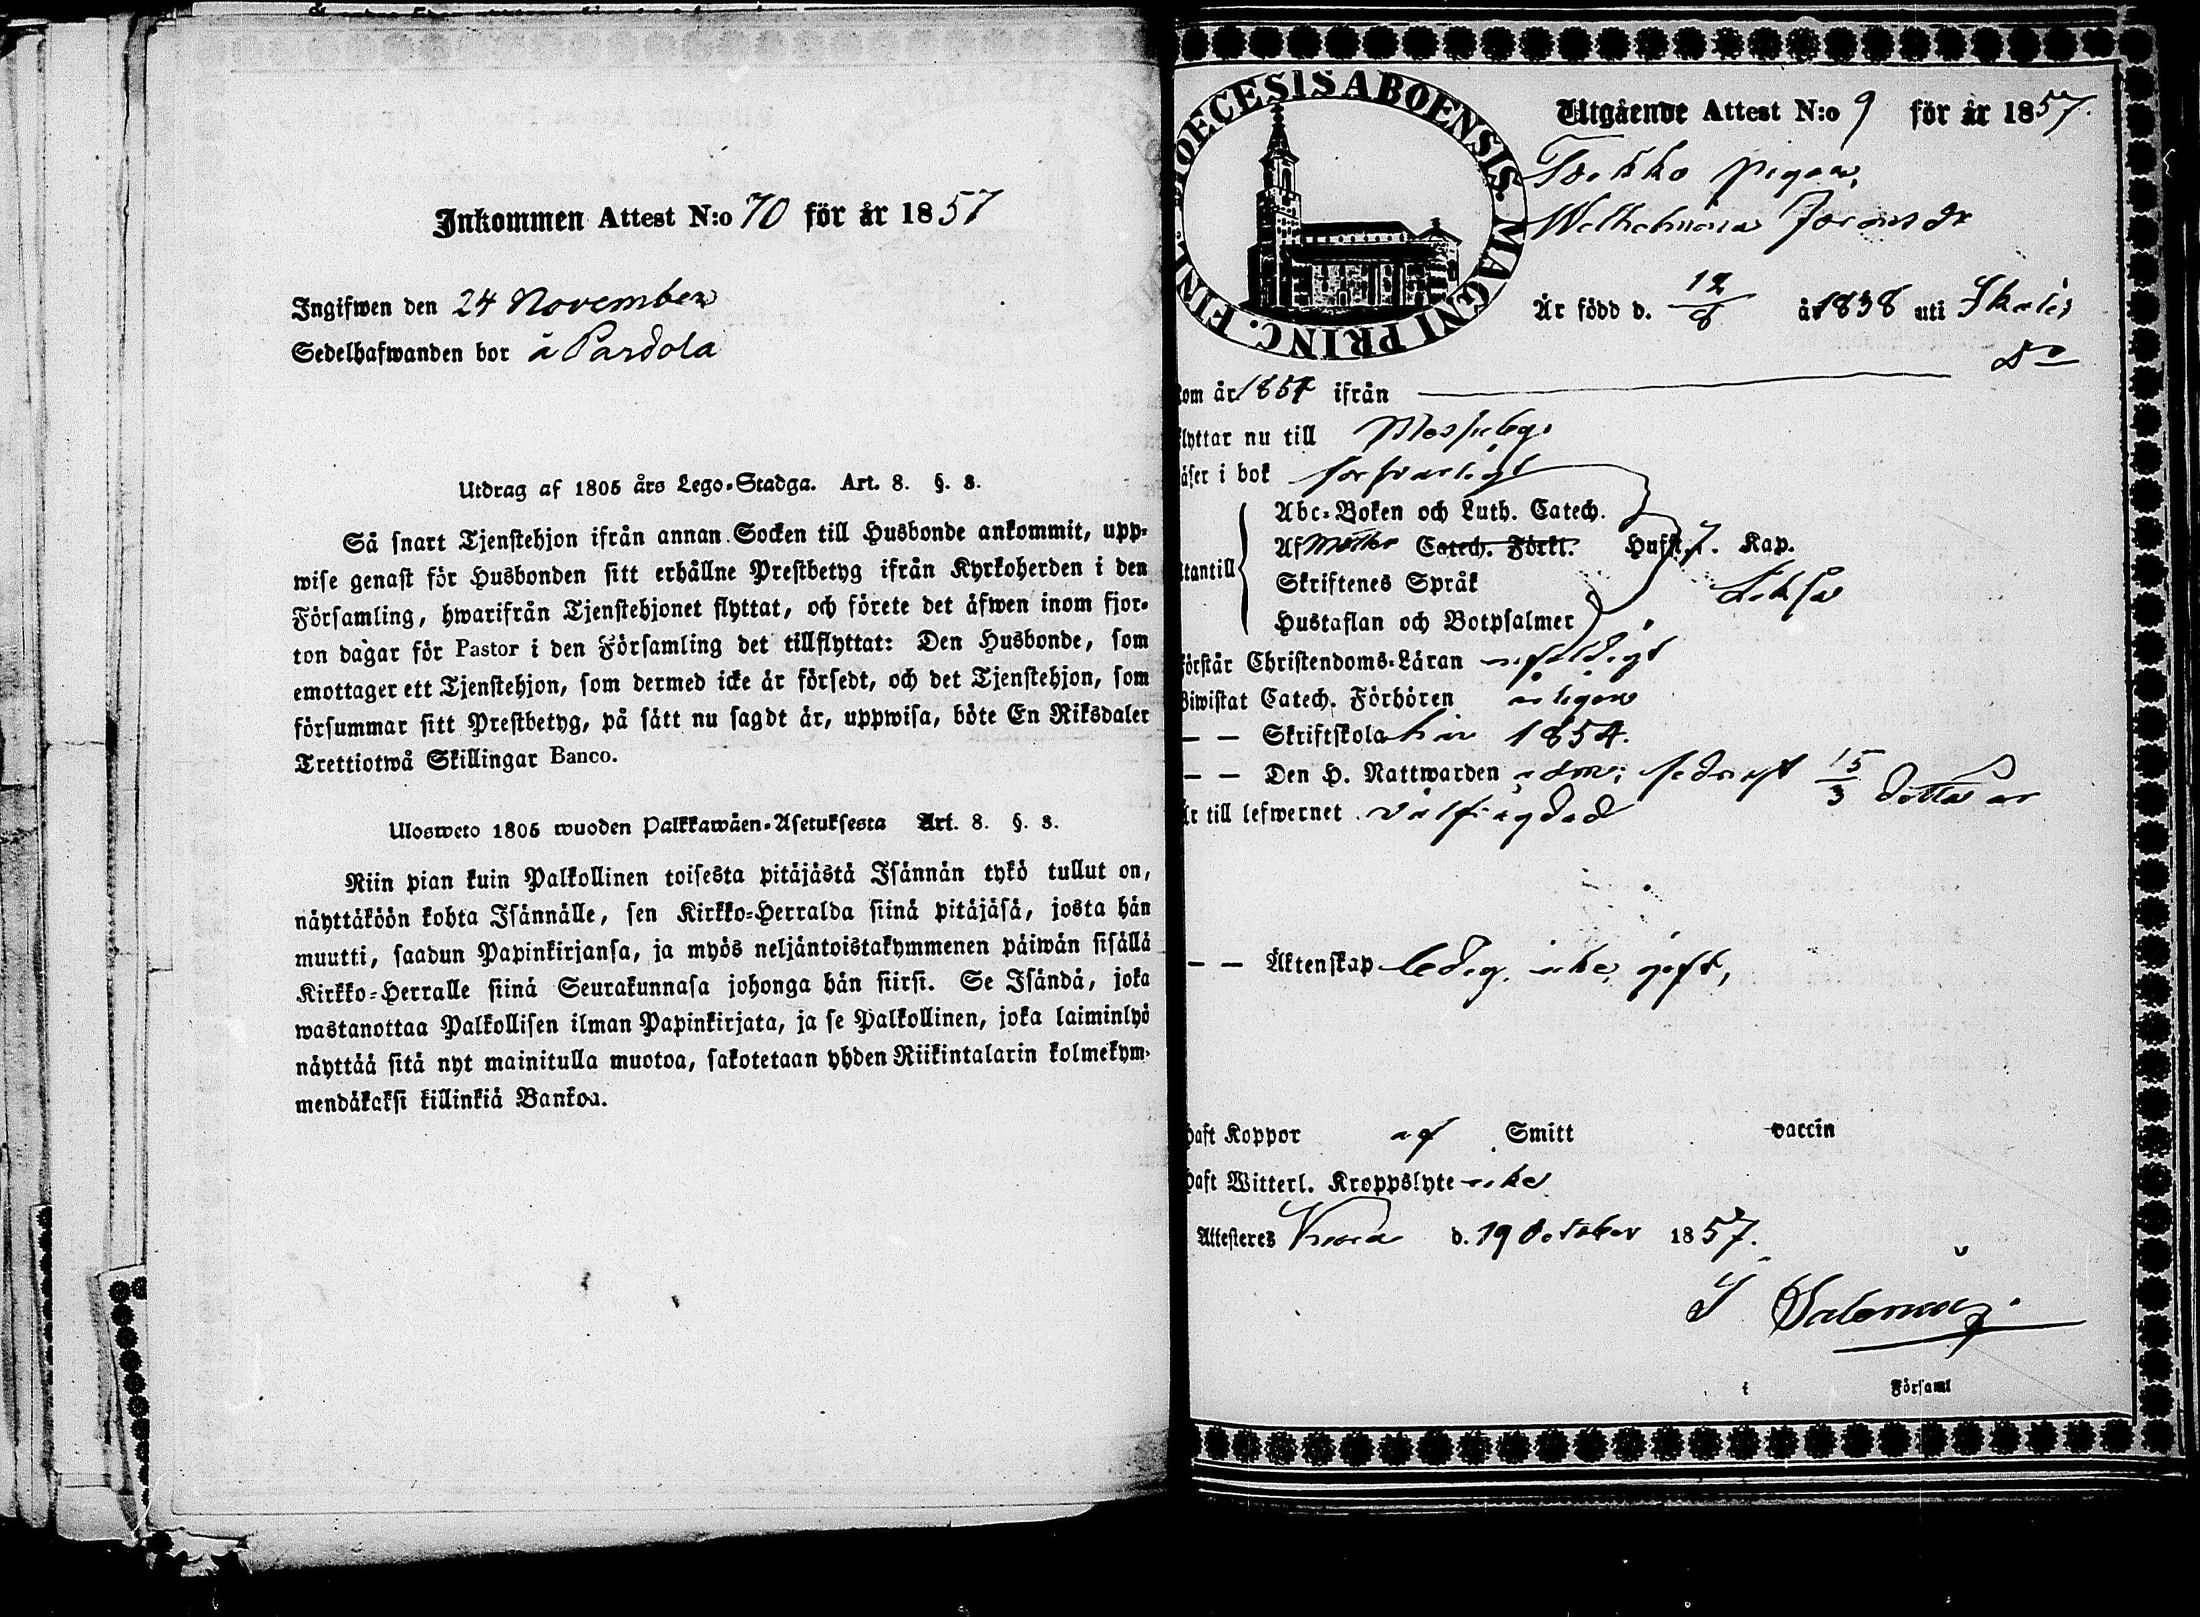 Inkommen Attest N:o 70 för år 1857
Ingifwen den 24 November
Sedelhafwanden bor å Pardola
Utdrag af 1805 års Lego-Stadga. Art. 8. §. 3.
Så snart Tjenstehjon ifrån annan Socken till Husbonde ankommit, upp-
wise genast för Husbonden sitt erhållne Prestbetyg ifrån Kyrkoherden i den
Församling, hwarifrån Tjenstehjonet flyttat, och förete det äfwen inom fjor-
ton dagar för Pastor i den Församling det tillflyttat: Den Husbonde, som
emottager ett Tjenstehjon, som dermed icke är försedt, och det Tjenstehjon, som
försummar sitt Prestbetyg, på sätt nu sagdt är, uppwisa, böte En Riksdaler
Trettiotwå Skillingar Banco.
Ulosweto 1805 wuoden Palkkawäen-Asetuksesta Art. 8. §. 3.
Niin pian kuin Palkollinen toisesta pitäjästä Isännän tykö tullut on,
näyttäköön kohta Isännälle, sen Kirkko-Herralda siinä pitäjäsä, josta hän
muutti, saadun Papinkirjansa, ja myös neljäntoistakymmenen päiwän sisällä
Kirkko-Herralle siinä Seurakunnasa johonga hän siirsi. Se Isändä, joka
wastanottaa Palkollisen ilman Papinkirjata, ja se Palkollinen, joka laiminlyö
näyttää sitä nyt mainitulla muotoa, sakotetaan yhden Riikintalarin kolmekym-
mendäkaksi killinkiä Bankoa.
DIOECESIS ABOENSIS. MAGNI PRINC. FINL.
Utgående Attest N:o 9 för år 1857.
pigan
Är född d. 12/8 år 1838 uti
Do
kom år 1857 ifrån
flyttar nu till
läser i bok försvarligt
Abc-Boken och Luth. Catech.
utantill Af Catech. Förkl. Husst. Kap.
Skriftenes Språk
Hustaflan och Botpsalmer
Förstår Christendoms-Läran enfaldigt
Biwistat Catech. Förhören årligen
— — Skriftskola här 1854.
— — Den H. Nattwarden sednast 15/3 detta år
Är till lefwernet välfrägdad
— — Äktenskap ledig, icke gift,
Haft Koppor af Smitt vaccin
Haft Witterl. Kroppslyte icke
Attesteres d. 19 October 1857.
i Församl